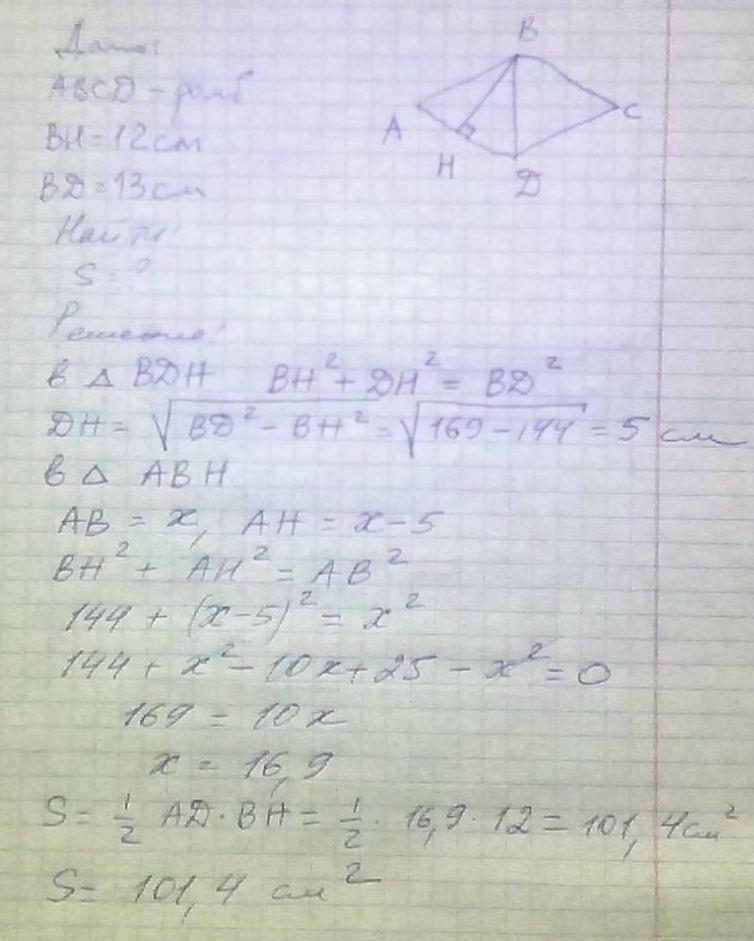 Дано:
ABCD - ромб
BH = 12 см
BD = 13 см
Найти
S = ?
Решение:
B
A
C
H
D
в △ BDH BH² + DH² = BD²
DH = √(BD² - BH²) = √(169 - 144) = 5 см
в △ ABH
AB = x, AH = x - 5
BH² + AH² = AB²
144 + (x-5)² = x²
144 + x² - 10x + 25 - x² = 0
169 = 10x
x = 16,9
S = 1/2 AD · BH = 1/2 · 16,9 · 12 = 101,4 см²
S = 101,4 см²